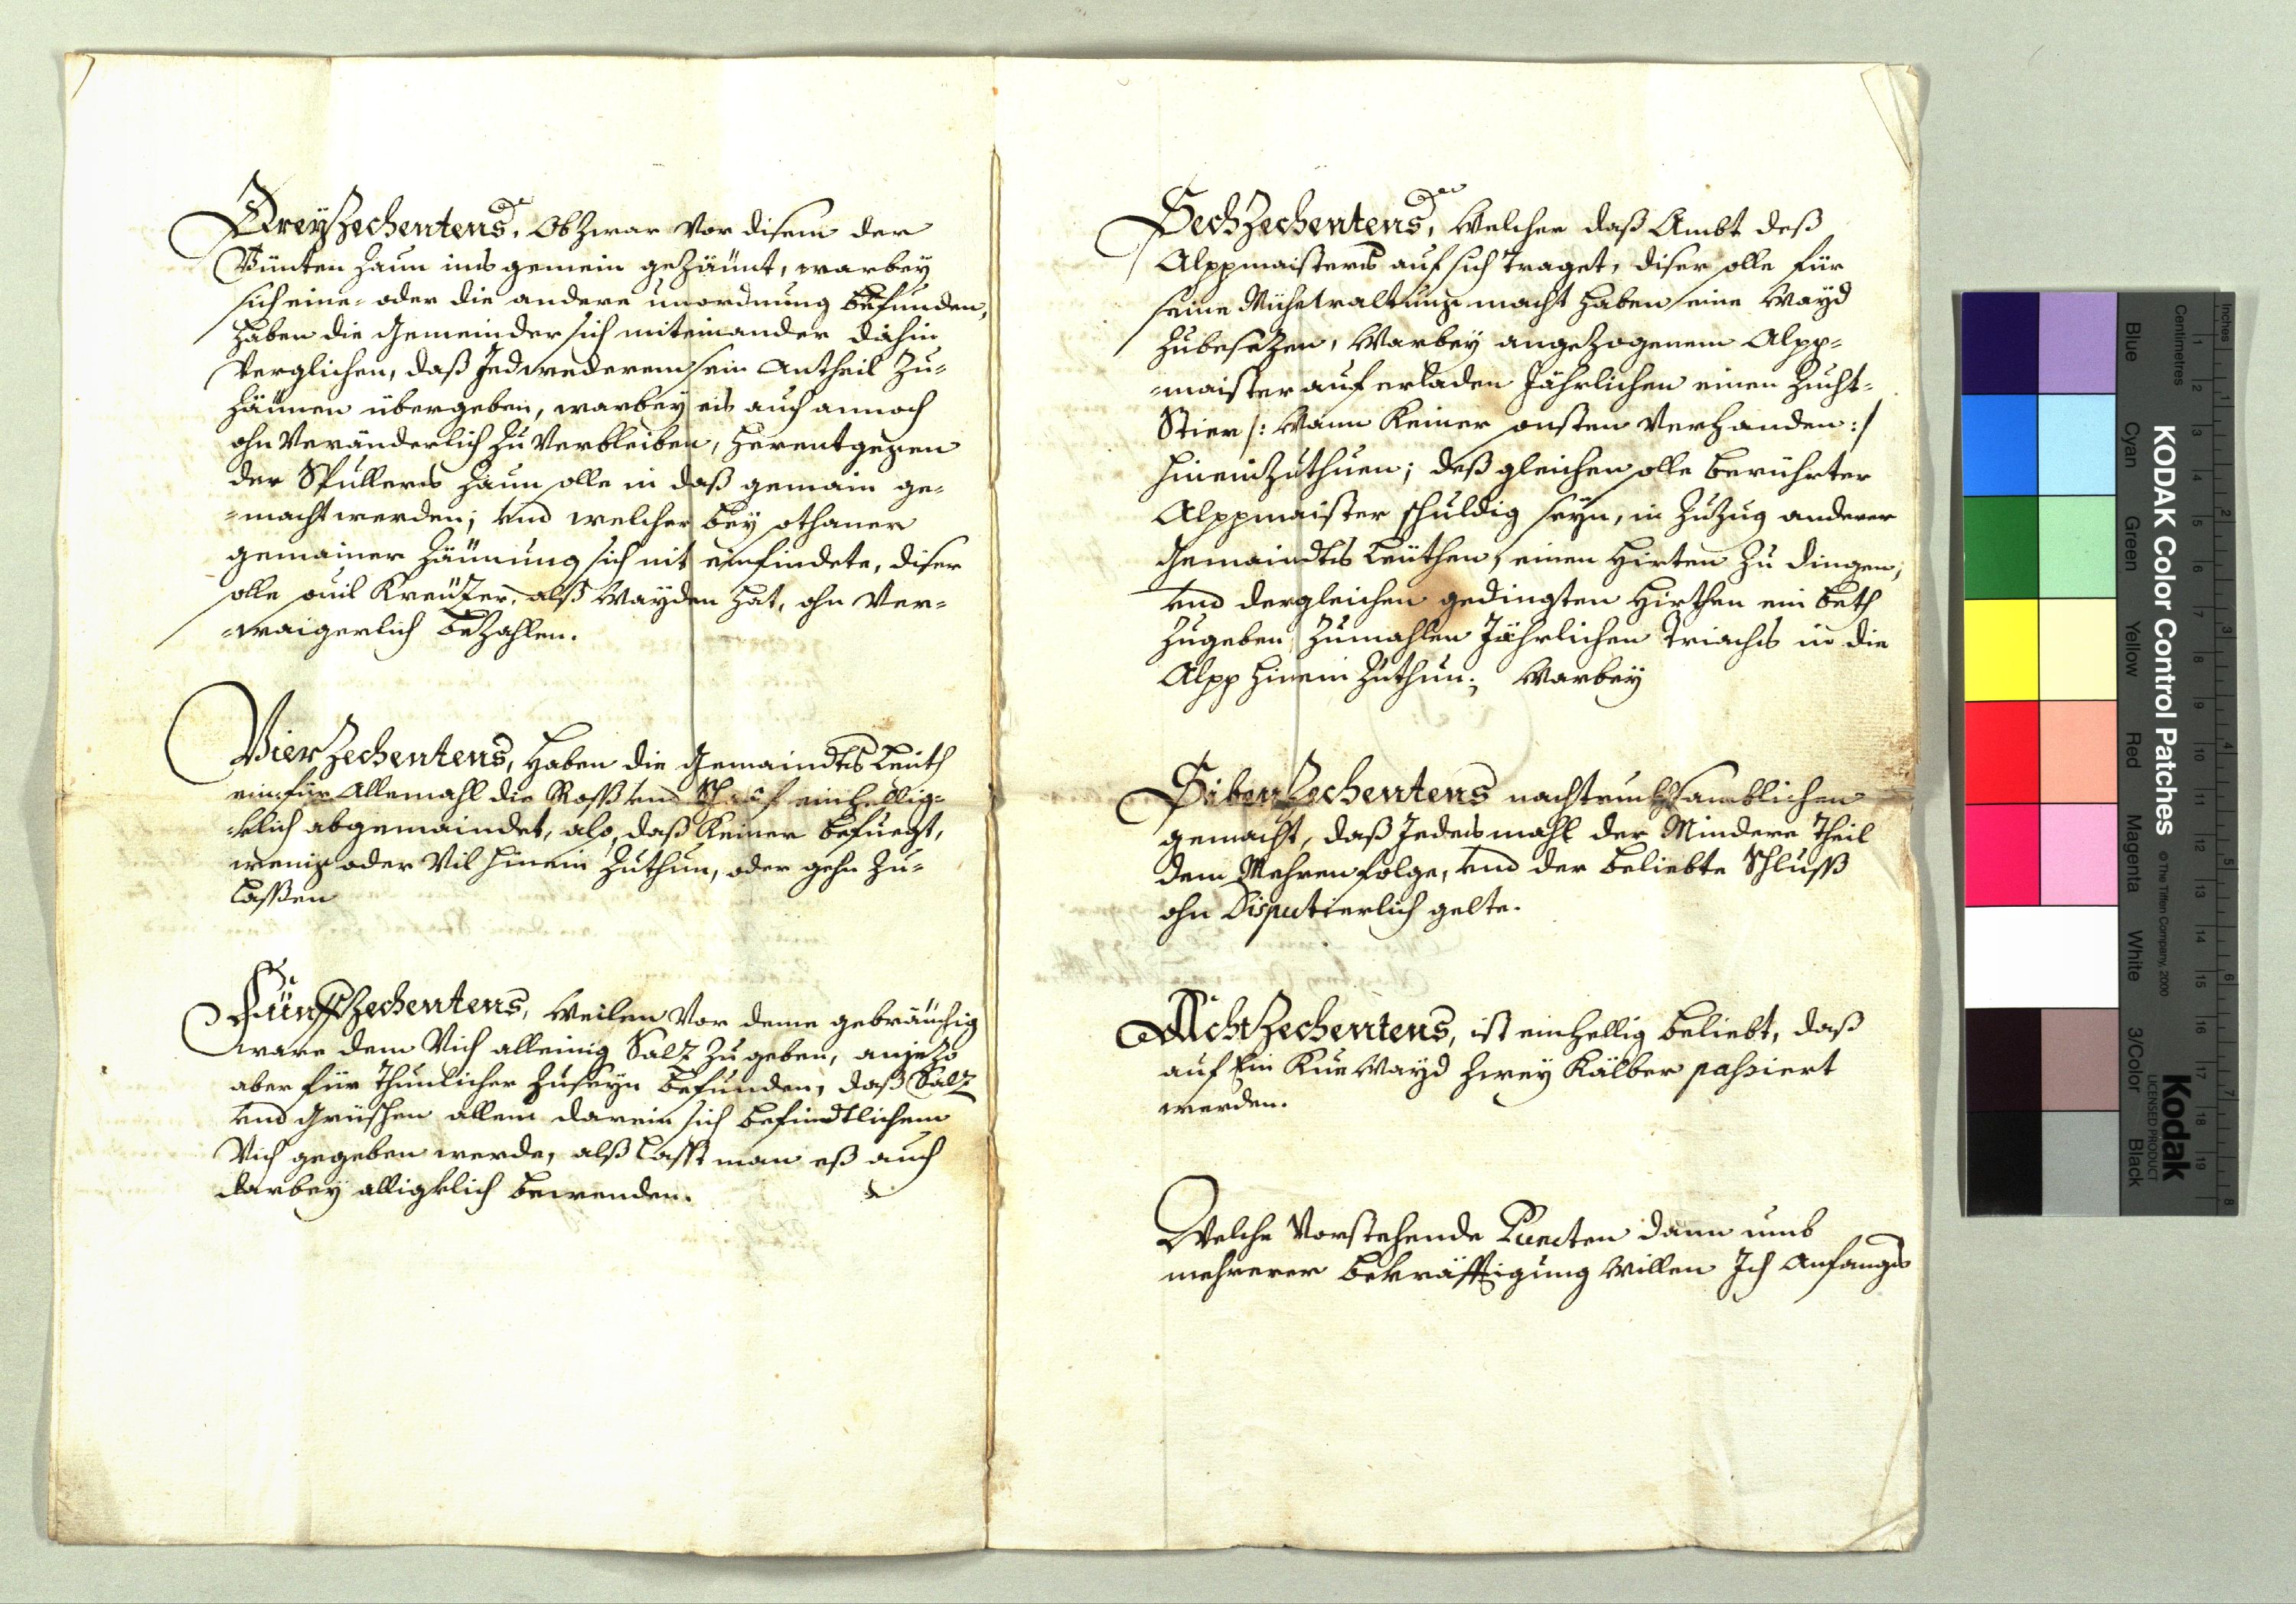 Dreyzechentens, Obzwar vor disem der
Bünten Zaun ins gemein gezäünt, warbey
sich eine- oder die andere unordnung befunden,
haben die Gemeinder sich miteinander dahin
verglichen, daß Jedwederem sein Antheil zu-
zäünen übergeben, warbey es auch annoch
ohn Veränderlich zu verbleiben, herentgegen
der Spullers Zaun solle in daß gemain ge-
-macht werden; vnd welcher bey sothaner
gemainer Zäünung sich nit einfindete, diser
solle souil Kreützer, alß Wayden hat, ohn Ver-
-waigerlich bezahlen.
Vierzechentens, haben die Gemaindts Leüth
ein für Allemahl die Roß vnd Schaaf einhellig-
-klich abgemaindet, also, daß Keiner befuegt,
wenig oder Vil hinein zuthun, oder gehn zu-
lassen
Fünffzechentens, Weilen Vor deme gebräuchig
ware dem Vich alleinig Saltz zu geben, anjezo
aber für thunlicher zuseyn befunden, daß Saltz
vnd Grüschen allem darein sich befindtlichem
Vich gegeben werde, alß lasst man eß auch
darbey alligklich bewenden.
Sechzechentens, Welcher daß Ambt deß
Alppmaisters auf sich traget, diser solle für
seine Mühewaltung macht haben eine Wayd
zubesezen, Warbey angezogenem Alpp-
-maister auf erladen Jährlichen einen Zucht-
Stier /: Wann Keiner sonsten Verhanden :/
hineinzuthuen; deßgleichen solle berührter
Alppmaister schuldig seyn, in Zuzug anderer
Gemaindts Leüthen, einen Hirten zu dingen,
vnd dergleichen gedingten Hirthen ein Beth
zugeben, zumahlen Jährlichen Triachs in die
Alpp hinein zuthun; Warbey
Sibenzechentens nachtruckhsamblichen
gemacht, daß Jedesmahl der Mindere Theil
dem Mehren folge, vnd der beliebte Schluß
ohn Disputierlich gelte.
Achtzechentens, ist einhellig beliebt, daß
auf Ein Kue Wayd zwey Kälber passiert
werden.
Welche Vorstehende Puncten dann umb
mehrerer bekräfftigung willen Ich Anfangs
KODAK Color Control Patches © The Tiffen Company, 2000
Kodak
LICENSED PRODUCT
Inches
Centimetres
Blue Cyan Green Yellow Red Magenta White 3/Color Black
1 2 3 4 5 6 7 8
1 2 3 4 5 6 7 8 9 10 11 12 13 14 15 16 17 18 19